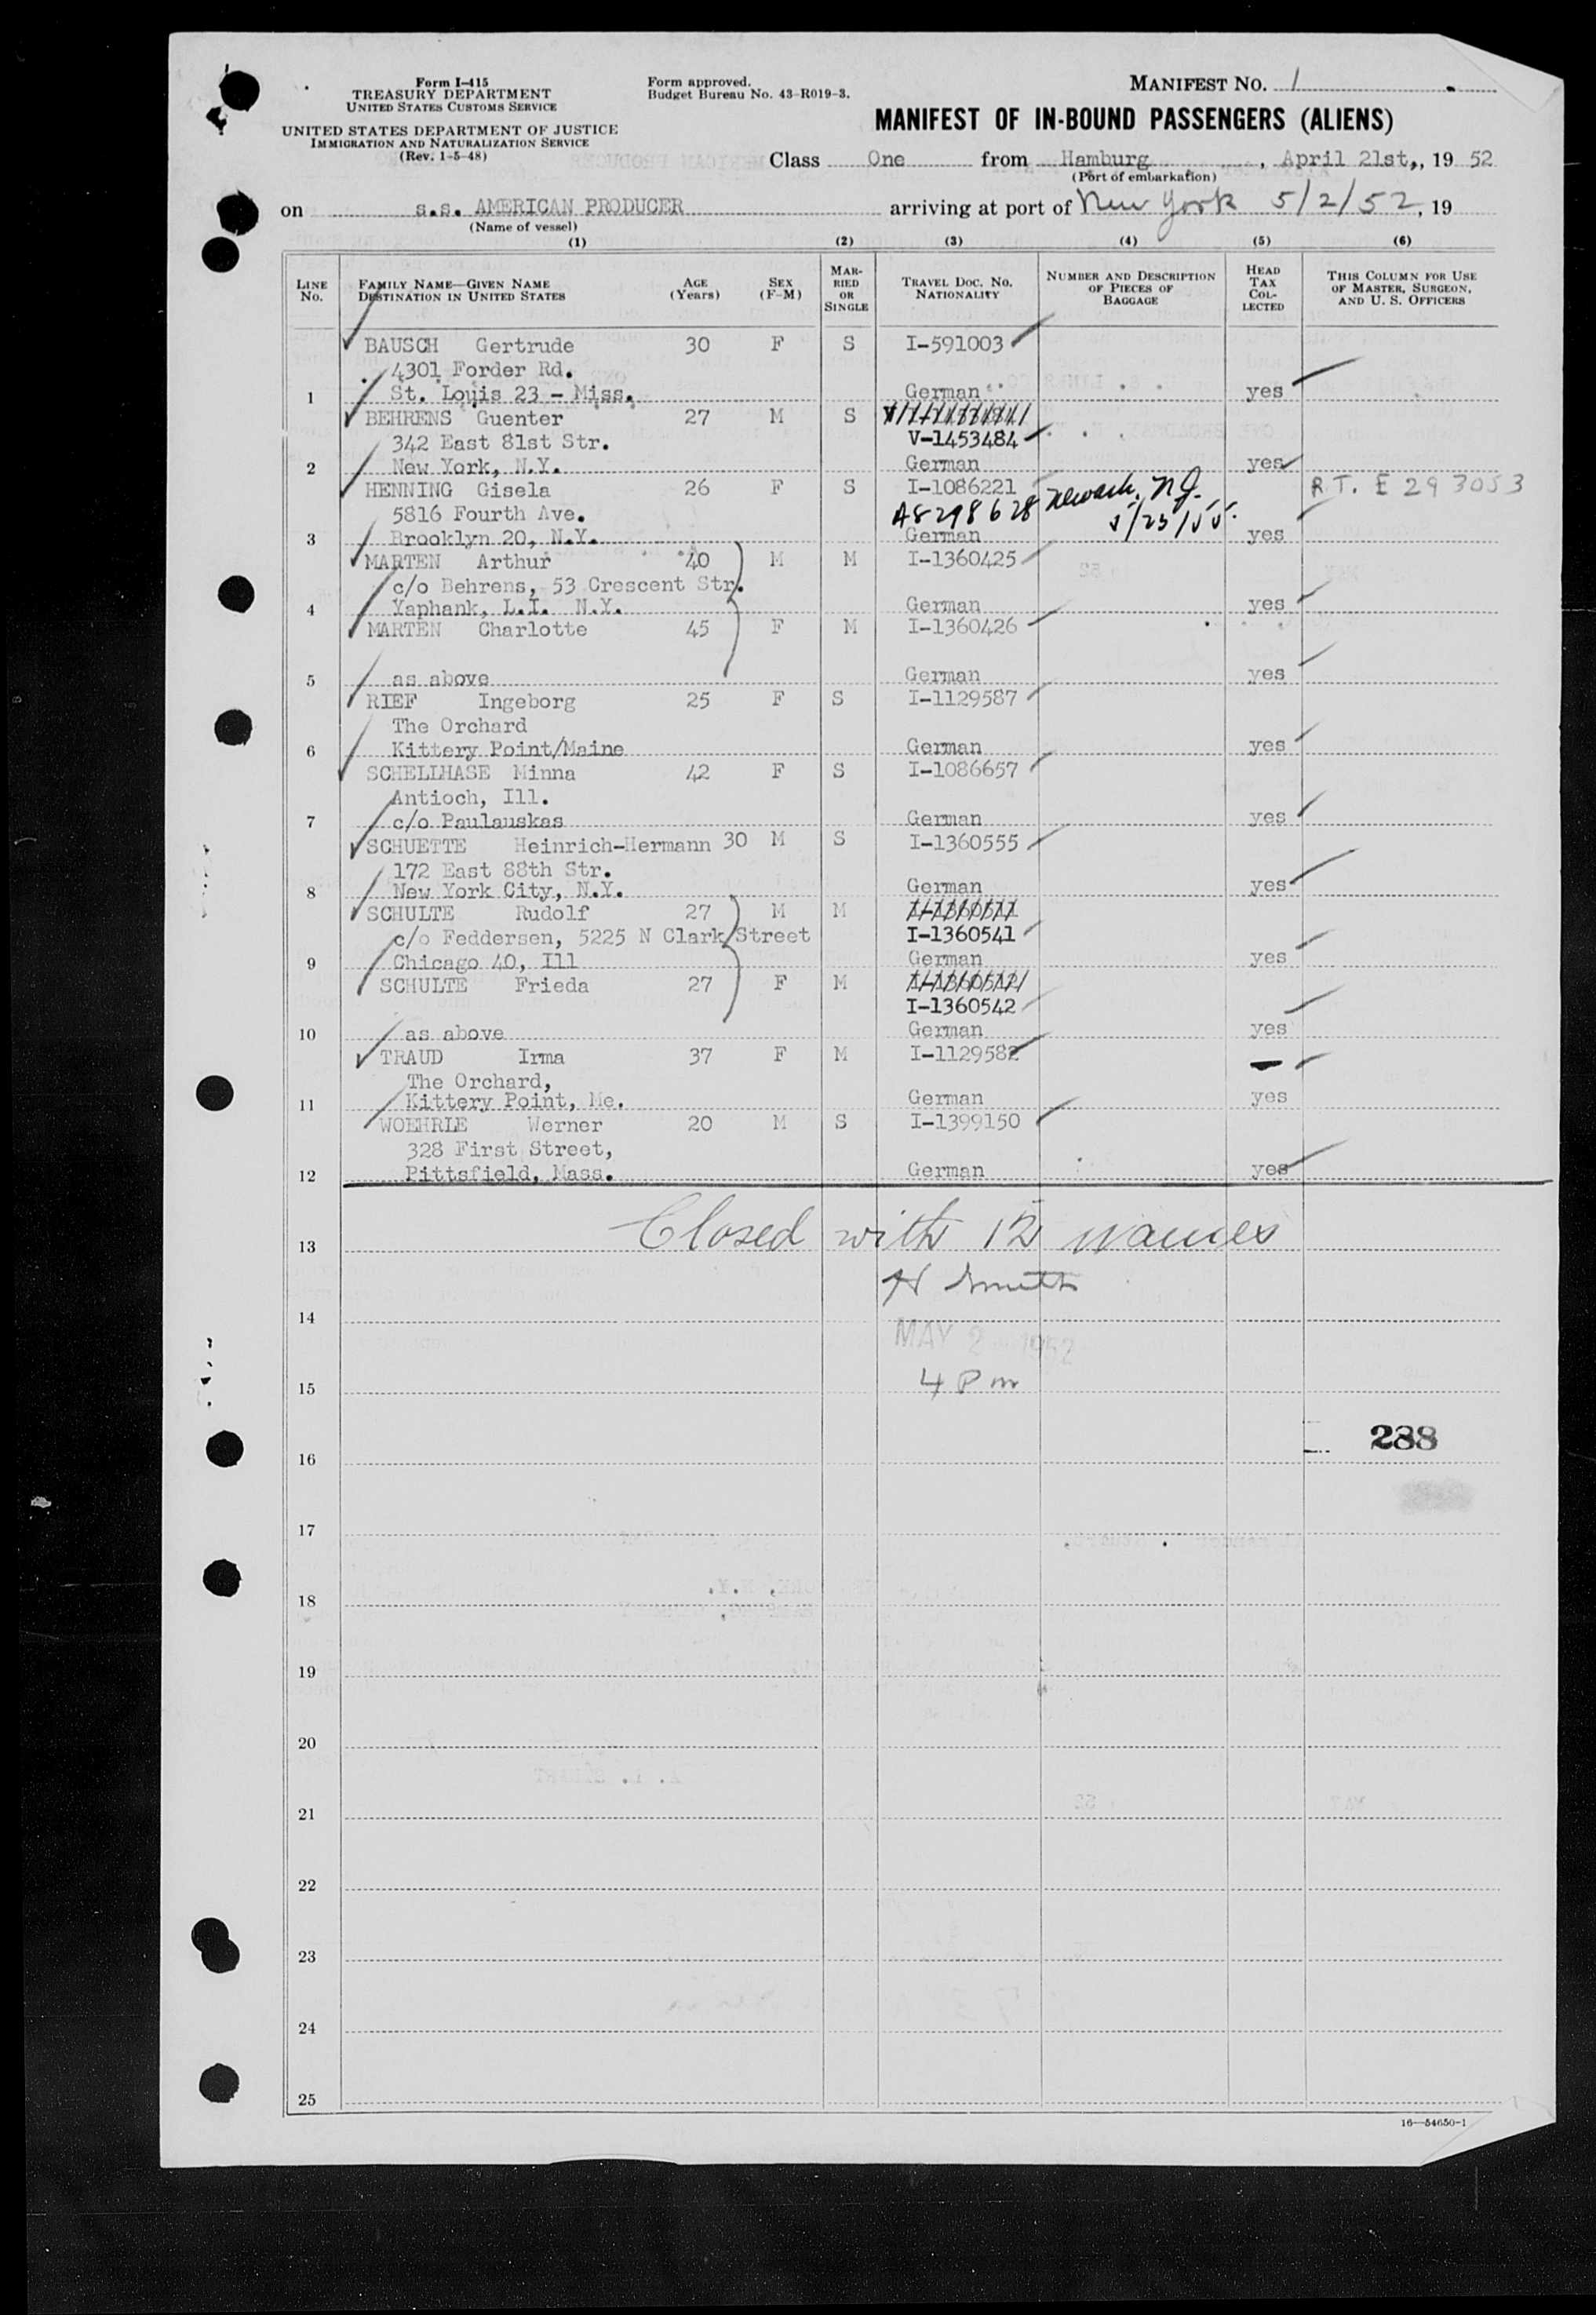 Form I-415
TREASURY DEPARTMENT
UNITED STATES CUSTOMS SERVICE
UNITED STATES DEPARTMENT OF JUSTICE
IMMIGRATION AND NATURALIZATION SERVICE
(Rev. 1-5-48)
Form approved.
Budget Bureau No. 43-R019-3.
MANIFEST NO. 1
MANIFEST OF IN-BOUND PASSENGERS (ALIENS)
Class One from Hamburg, April 21st., 19 52
(Port of embarkation)
on s.s. AMERICAN PRODUCER arriving at port of New York 5/2/52, 19
(Name of vessel)
(1) (2) (3) (4) (5) (6)
LINE No.
FAMILY NAME—GIVEN NAME
DESTINATION IN UNITED STATES
AGE (Years)
SEX (F-M)
MARRIED OR SINGLE
TRAVEL DOC. NO. NATIONALITY
NUMBER AND DESCRIPTION OF PIECES OF BAGGAGE
HEAD TAX COLLECTED
THIS COLUMN FOR USE OF MASTER, SURGEON, AND U. S. OFFICERS
BAUSCH Gertrude 30 F S I-591003
4301 Forder Rd.
1 St. Louis 23 - Miss. German yes
BEHRENS Guenter 27 M S
342 East 81st Str. V-1453484
2 New York, N.Y. German yes
HENNING Gisela 26 F S I-1086221 R.T. E 293053
5816 Fourth Ave. A8298628 Newark, N.J.
3 Brooklyn 20, N.Y. German 5/23/55. yes
MARTEN Arthur 40 M M I-1360425
c/o Behrens, 53 Crescent Str.
4 Yaphank, L.I. N.Y. German yes
MARTEN Charlotte 45 F M I-1360426
5 as above German yes
RIEF Ingeborg 25 F S I-1129587
The Orchard
6 Kittery Point/Maine German yes
SCHELLHASE Minna 42 F S I-1086657
Antioch, Ill.
7 c/o Paulauskas German yes
SCHUETTE Heinrich-Hermann 30 M S I-1360555
172 East 88th Str.
8 New York City, N.Y. German yes
SCHULTE Rudolf 27 M M
c/o Feddersen, 5225 N Clark Street I-1360541
9 Chicago 40, Ill German yes
SCHULTE Frieda 27 F M
I-1360542
10 as above German yes
TRAUD Irma 37 F M I-1129582
The Orchard,
11 Kittery Point, Me. German yes
WOEHRLE Werner 20 M S I-1399150
328 First Street,
12 Pittsfield, Mass. German yes
13 Closed with 12 names
H Smith
14
MAY 2 1952
15 4 Pm
288
16
17
18
19
20
21
22
23
24
25
16—54650-1